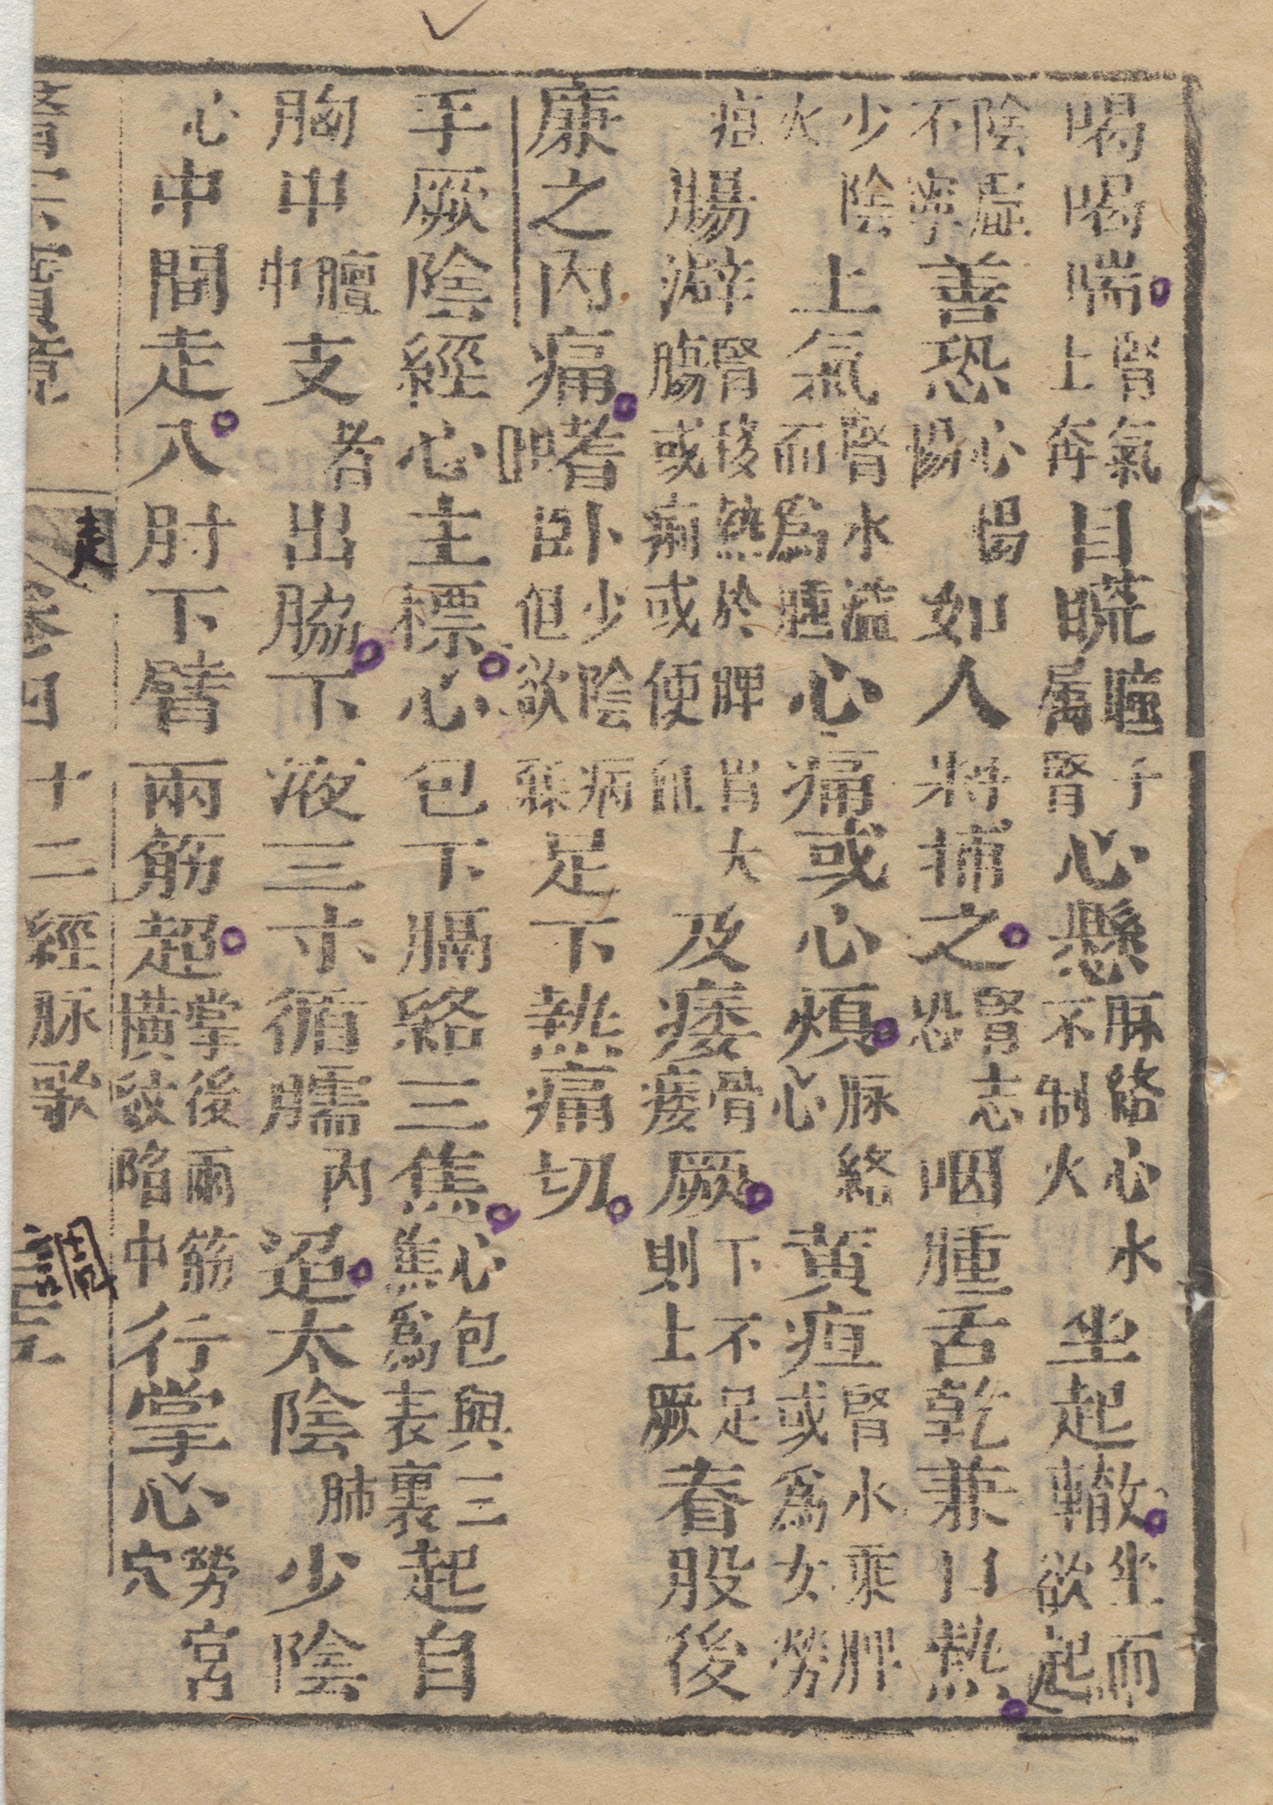 喝喝喘腎氣上奔目䀮瞳子屬腎心懸脉絡心水不制火坐起轍坐而欲起
陰虛不寧善恐心惕惕如人將捕之腎志恐咽腫舌乾兼口熱
少陰火上氣腎水溢而爲腫心痛或心煩脉絡心黃疸腎水乘脾或爲女勞
疸腸澼腎移熱於脾胃大腸或痢或便血及痿骨痿厥下不足則上厥脊股後
廉之內痛嗜卧少陰病但欲寐足下熱痛切
手厥陰經心主標心包下膈絡三焦心包與三焦爲表裏起自
胸中膻中支者出脇下液三寸循臑內迢太陰肺少陰
心中間走入肘下臂兩筋起掌後兩筋橫紋陷中行掌心勞宮穴
卷四
十二經脉歌